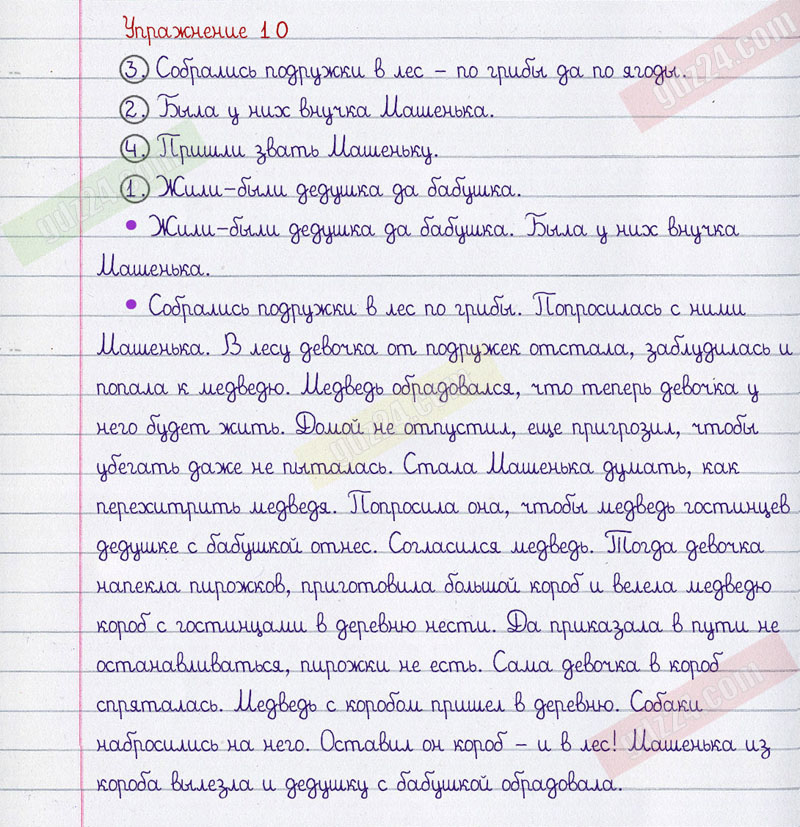 Упражнение 10
3. Собрались подружки в лес – по грибы да по ягоды.
2. Была у них внучка Машенька.
4. Пришли звать Машеньку.
1. Жили-были дедушка да бабушка.
• Жили-были дедушка да бабушка. Была у них внучка
Машенька.
• Собрались подружки в лес по грибы. Попросилась с ними
Машенька. В лесу девочка от подружек отстала, заблудилась и
попала к медведю. Медведь обрадовался, что теперь девочка у
него будет жить. Домой не отпустил, еще пригрозил, чтобы
убегать даже не пыталась. Стала Машенька думать, как
перехитрить медведя. Попросила она, чтобы медведь гостинцев
дедушке с бабушкой отнес. Согласился медведь. Тогда девочка
напекла пирожков, приготовила большой короб и велела медведю
короб с гостинцами в деревню нести. Да приказала в пути не
останавливаться, пирожки не есть. Сама девочка в короб
спряталась. Медведь с коробом пришел в деревню. Собаки
набросились на него. Оставил он короб – и в лес! Машенька из
короба вылезла и дедушку с бабушкой обрадовала.
gdz24.com
gdz24.com
gdz24.com
gdz24.com